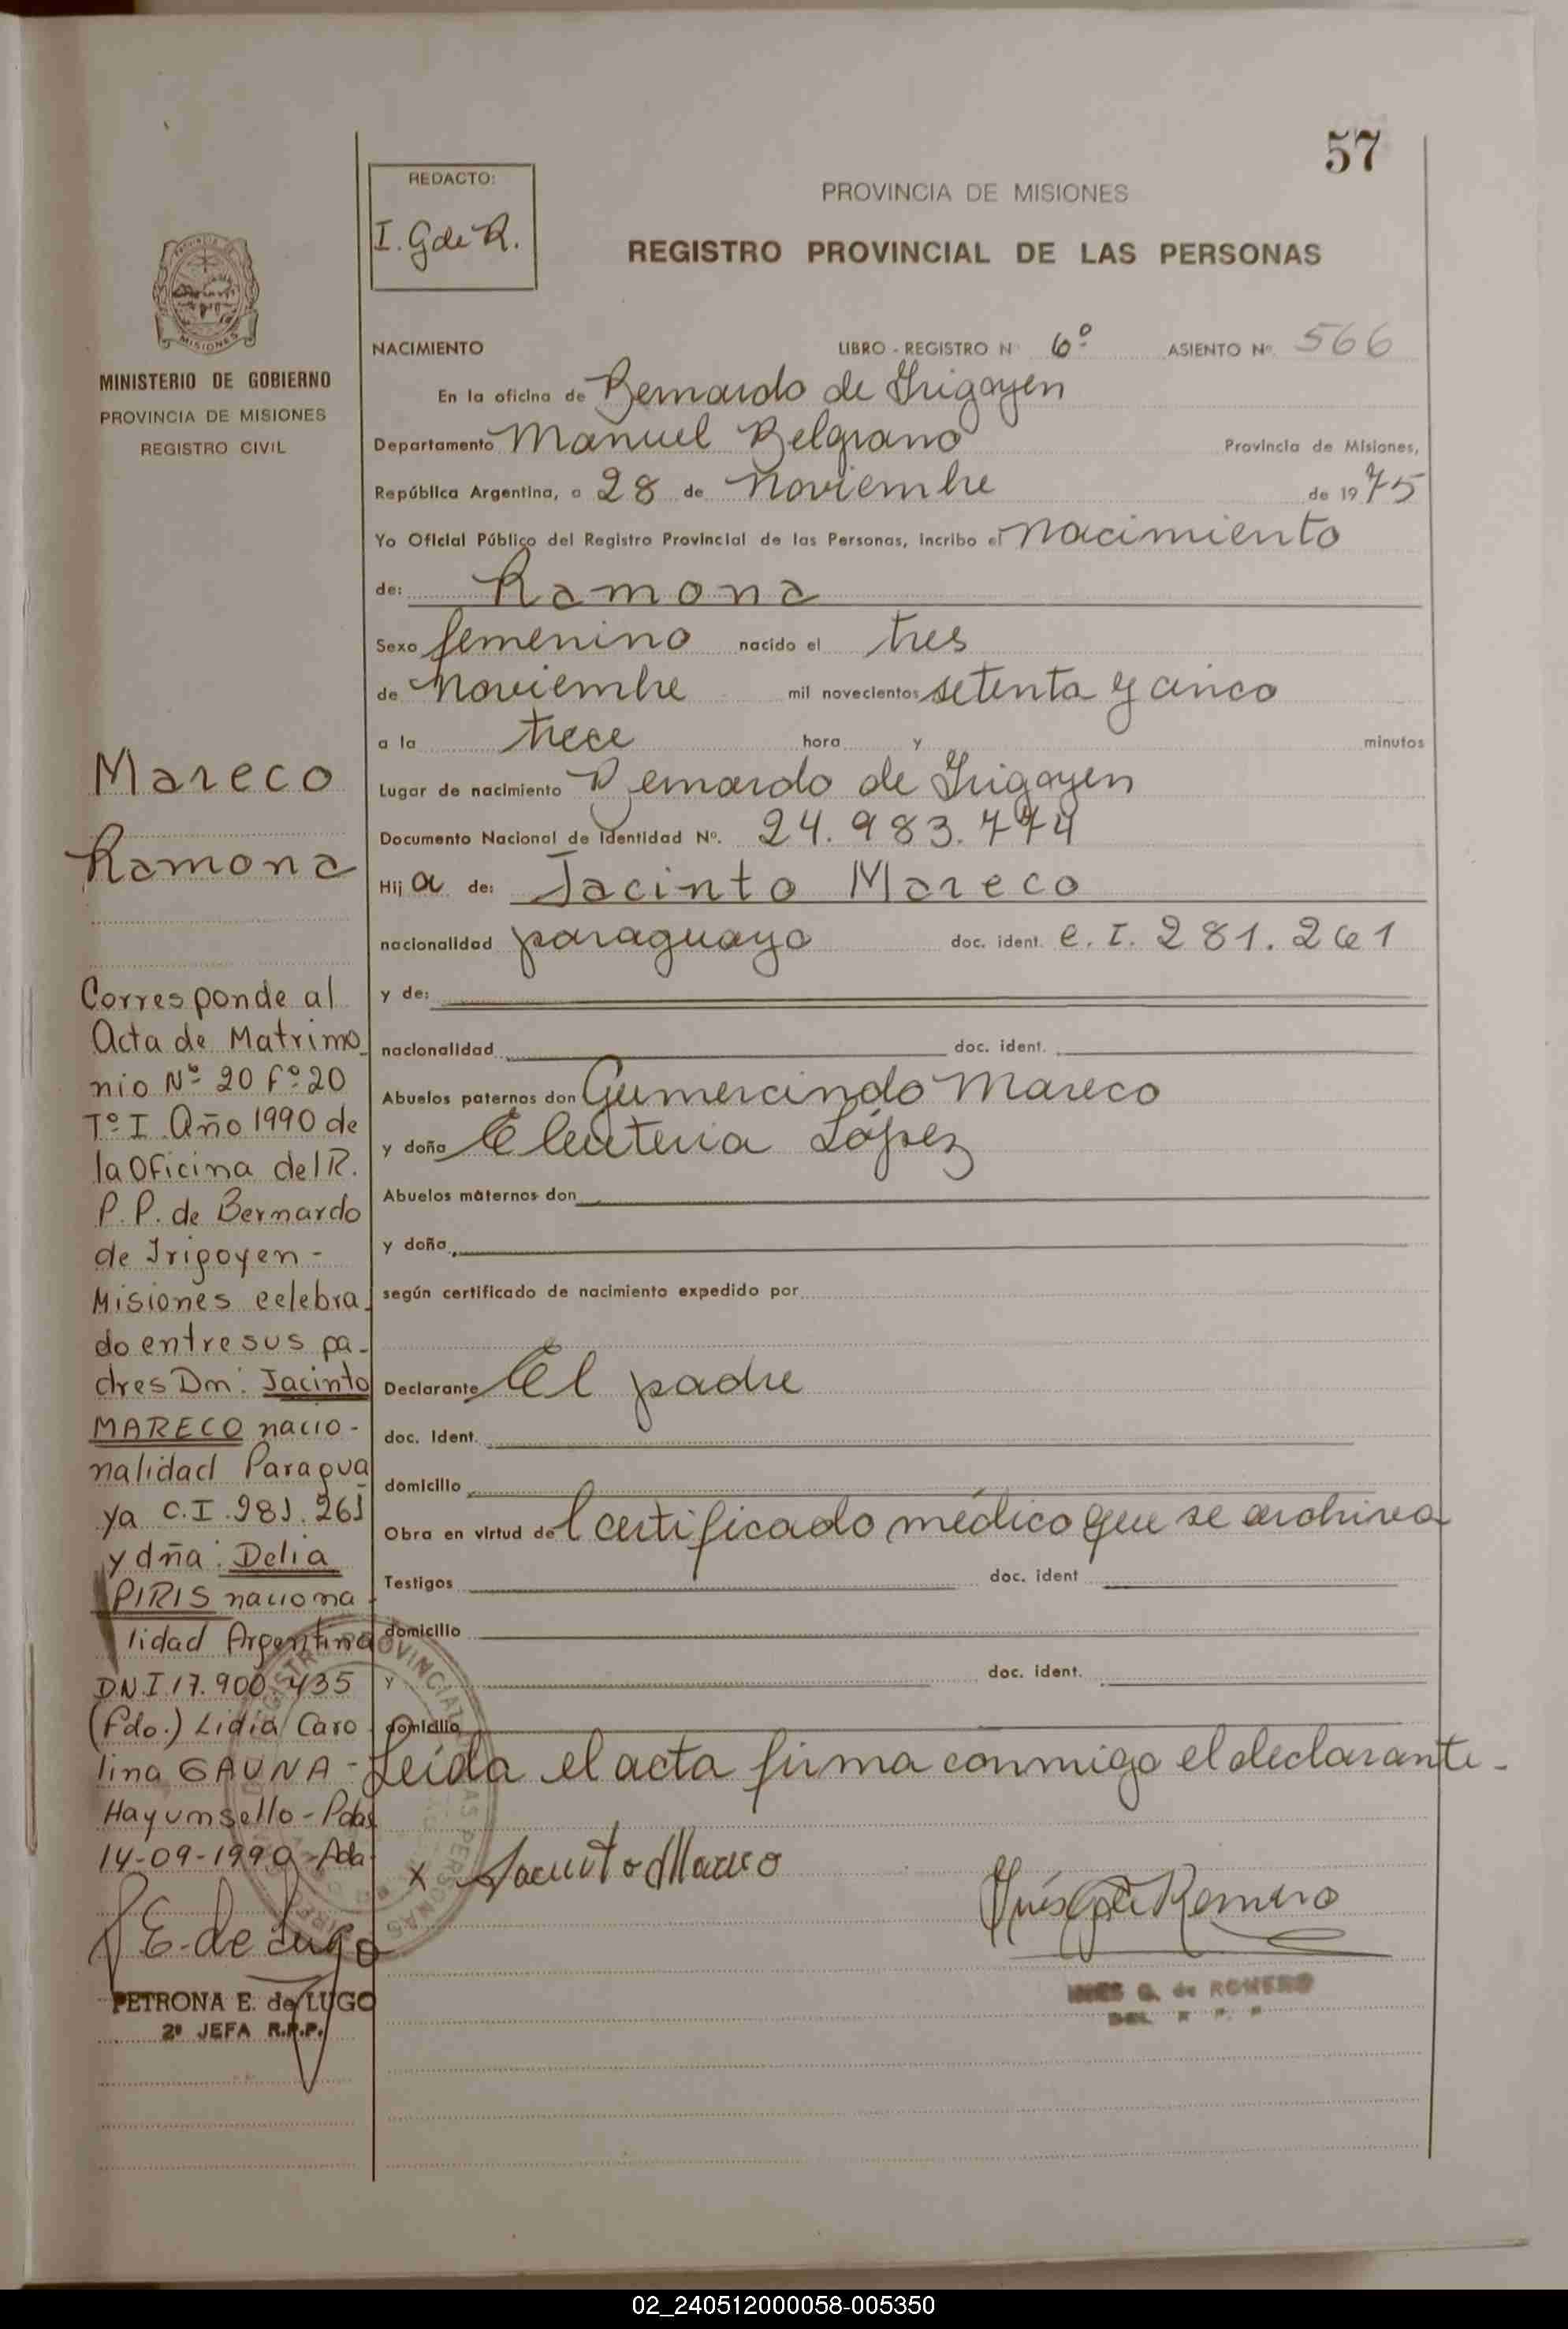 57
REDACTO:
I. G de R.
PROVINCIA DE MISIONES
REGISTRO PROVINCIAL DE LAS PERSONAS
MISIONES
MINISTERIO DE GOBIERNO
PROVINCIA DE MISIONES
REGISTRO CIVIL
NACIMIENTO LIBRO - REGISTRO Nº 6º ASIENTO Nº 566
En la oficina de Bernardo de Irigoyen
Departamento Manuel Belgrano Provincia de Misiones,
República Argentina, a 28 de Noviembre de 1975
Yo Oficial Público del Registro Provincial de las Personas, incribo el nacimiento
de: Ramona
Sexo femenino nacido el tres
de Noviembre mil novecientos setenta y cinco
a la trece hora y minutos
Lugar de nacimiento Bernardo de Irigoyen
Documento Nacional de Identidad Nº. 24.983.774
Hija de: Jacinto Mareco
nacionalidad paraguaya doc. ident. C.I. 281.261
y de:
nacionalidad doc. ident.
Abuelos paternos don Gumercindo Mareco
y doña Eleuteria López
Abuelos maternos don
y doña
según certificado de nacimiento expedido por
Declarante El padre
doc. Ident.
domicilio
Obra en virtud del certificado médico que se archiva
Testigos doc. ident
domicilio
y doc. ident.
domicilio
Leída el acta firma conmigo el declarante-
x Jacinto Mareco
Inés G de Romero
INES G. de ROMERO
Mareco
Ramona
Corresponde al
Acta de Matrimo
nio Nº 20 Fº 20
Tº I Año 1990 de
la Oficina del R.
P.P. de Bernardo
de Irigoyen -
Misiones celebra
do entre sus pa-
dres Dn: Jacinto
MARECO nacio-
nalidad Paragua
ya C.I. 281.261
y dña: Delia
PIRIS naciona
lidad Argentina
DNI 17.900.435
(Fdo.) Lidia Caro
lina GAUNA -
Hay un sello - Pdas
14-09-1990
P E. de Lugo
PETRONA E. de LUGO
2ª JEFA R.P.P.
02_240512000058-005350